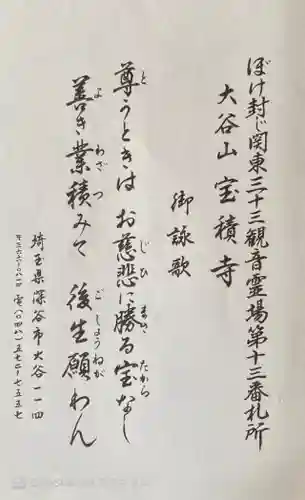 ぼけ封じ関東三十三観音霊場第十三番札所
大谷山 宝積寺
御詠歌
尊うときは お慈悲に勝る宝なし
善き業積みて 後生願わん
埼玉県深谷市大谷一一四
〒三六六-〇八一四 電(〇四八)五七二-七五五七